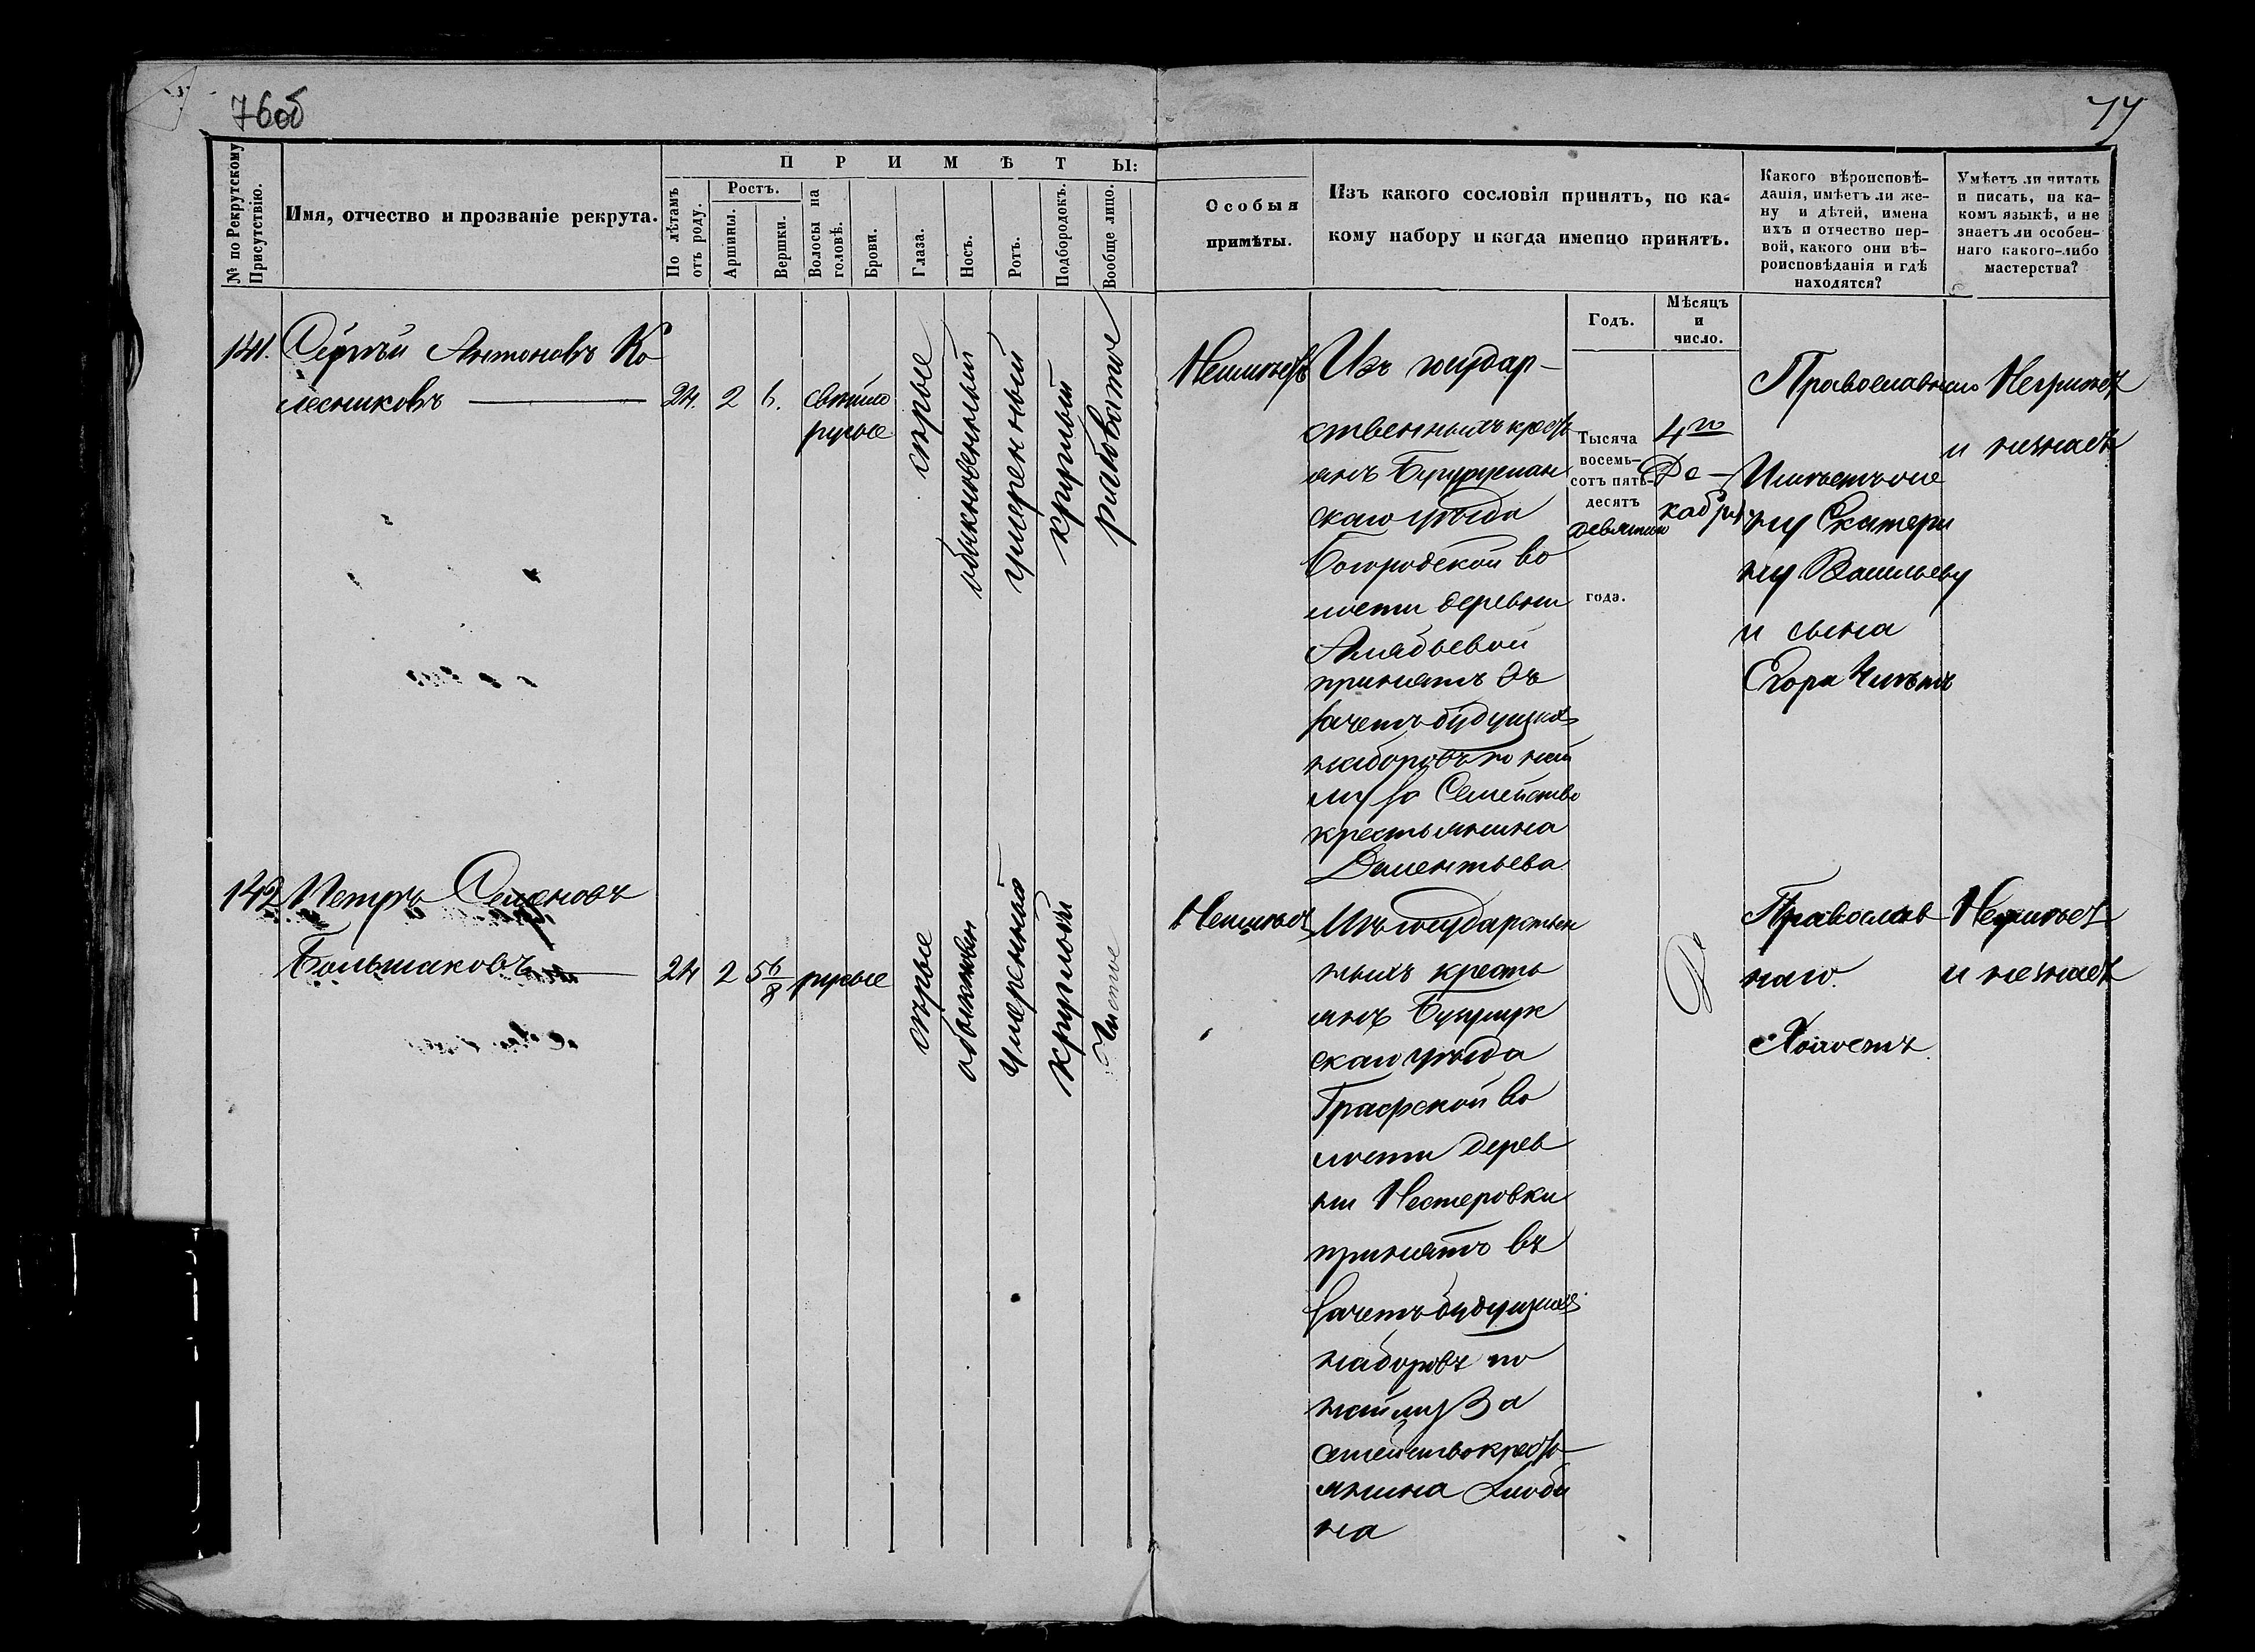 76об
77
№ по Рекрутскому Присутствію.
Имя, отчество и прозваніе рекрута.
ПРИМѢТЫ:
По лѣтамъ отъ роду.
Ростъ.
Аршины.
Вершки.
Волосы на головѣ.
Брови.
Глаза.
Носъ.
Ротъ.
Подбородокъ.
Вообще лицо.
Особыя
примѣты.
Изъ какого сословія принятъ, по ка-
кому набору и когда именно принятъ.
Годъ.
Мѣсяцъ
и
число.
Какого вѣроисповѣ-
данія, имѣетъ ли же-
ну и дѣтей, имена
ихъ и отчество пер-
вой, какого они вѣ-
роисповѣданія и гдѣ
находятся?
Умѣетъ ли читать
и писать, на ка-
комъ языкѣ, и не
знаетъ ли особен-
наго какого-либо
мастерства?
141. Сергѣй Антоновъ Ко
лесниковъ
24. 2 6.
свѣтло
русые
сѣрые
обыкновенный
умеренный
круглый
рябоватое
Неимѣетъ
Изъ государ-
ственныхъ кресть
янъ Бугуруслан
скаго уѣзда
Богородской во
лости деревни
Алябьевой
принятъ въ
зачетъ будущихъ
наборовъ по най
му за Семейство
крестьянина
Дементьева
Тысяча
восемь-
сотъ пять-
десятъ
девятаго
года.
4го
Де-
кабря
Православнаго
Имѣетъ же
ну Екатери
ну Васильеву
и сына
Егора
Неграмот
и незнаетъ
142 Петръ Семеновъ
Большаковъ
24 2 5 6/8
русые
сѣрые
обыкновен
умеренный
круглый
Чистое
Неимѣетъ
Изъ государствен
ныхъ кресть
янъ Бузулук
скаго уѣзда
Графской во
лости дерев
ни Нестеровки
принятъ въ
зачетъ будущихъ
наборовъ по
найму За
семейство кресть
янина Любы
на
Де
Православ
наго.
Холостъ
и незнаетъ